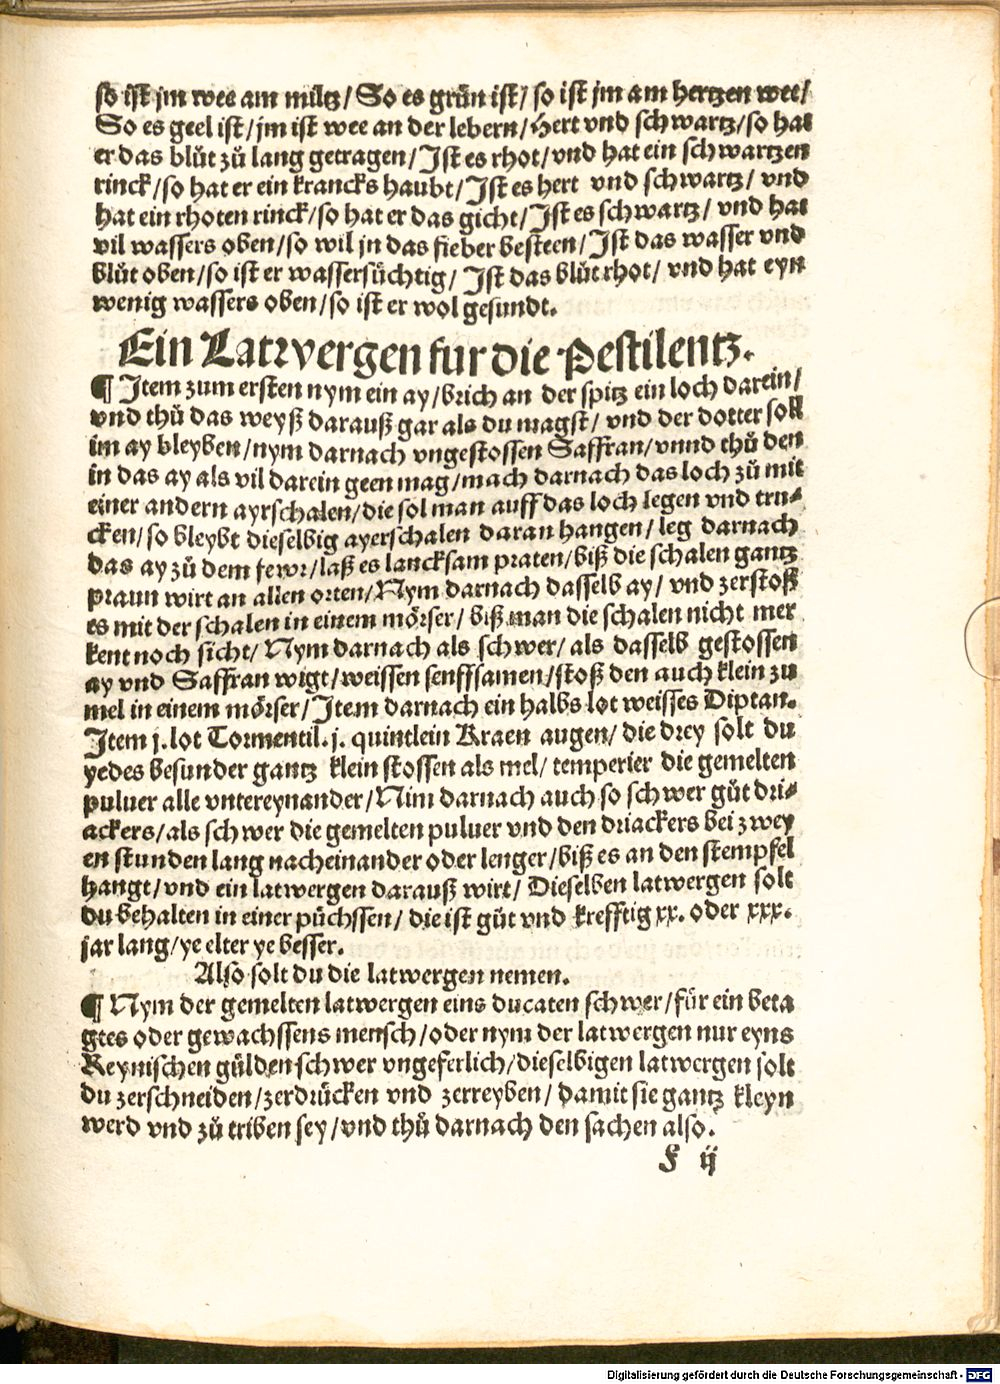 so ist jm wee am miltz/ So es grün ist/ so ist jm am hertzen wee/
So es geel ist/ jm ist wee an der lebern/ Hert vnd schwartz/ so hat
er das blůt zů lang getragen/ Ist es rhot/ vnd hat ein schwartzen
rinck/ so hat er ein krancks haubt/ Ist es hert vnd schwartz/ vnd
hat ein rhoten rinck/ so hat er das gicht/ Ist es schwartz/ vnd hat
vil wassers oben/ so wil jn das fieber besteen/ Ist das wasser vnd
blůt oben/ so ist er wassersüchtig/ Ist das blůt rhot/ vnd hat eyn
wenig wassers oben/ so ist er wol gesundt.
Ein Latwergen fur die Pestilentz.
¶ Item zum ersten nym ein ay/ brich an der spitz ein loch darein/
vnd thů das weyß darauß gar als du magst/ vnd der dotter soll
im ay bleyben/ nym darnach vngestossen Saffran/ vnnd thů den
in das ay als vil darein geen mag/ mach darnach das loch zů mit
einer andern ayrschalen/ die sol man auff das loch legen vnd tru⸗
cken/ so bleybt dieselbig ayerschalen daran hangen/ leg darnach
das ay zů dem fewr/ laß es lancksam praten/ biß die schalen gantz
praun wirt an allen orten/ Nym darnach dasselb ay/ vnd zerstoß
es mit der schalen in einem mörser/ biß man die schalen nicht mer
kent noch sicht/ Nym darnach als schwer/ als dasselb gestossen
ay vnd Saffran wigt/ weissen senffsamen/ stoß den auch klein zu
mel in einem mörser/ Item darnach ein halbs lot weisses Diptan.
Item j. lot Tormentil. j. quintlein Kraen augen/ die drey solt du
yedes besunder gantz klein stossen als mel/ temperier die gemelten
puluer alle vntereynander/ Nim darnach auch so schwer gůt dri⸗
ackers/ als schwer die gemelten puluer vnd den driackers bei zwey
en stunden lang nacheinander oder lenger/ biß es an den stempfel
hangt/ vnd ein latwergen darauß wirt/ Dieselben latwergen solt
du behalten in einer püchssen/ die ist gůt vnd krefftig xx. oder xxx.
jar lang/ ye elter ye besser.
Also solt du die latwergen nemen.
¶ Nym der gemelten latwergen eins ducaten schwer/ für ein beta
gtes oder gewachssens mensch/ oder nym der latwergen nur eyns
Reynischen gülden schwer vngeferlich/ dieselbigen latwergen solt
du zerschneiden/ zerdrücken vnd zerreyben/ damit sie gantz kleyn
werd vnd zů triben sey/ vnd thů darnach den sachen also.
F ij
Digitalisierung gefördert durch die Deutsche Forschungsgemeinschaft - DFG